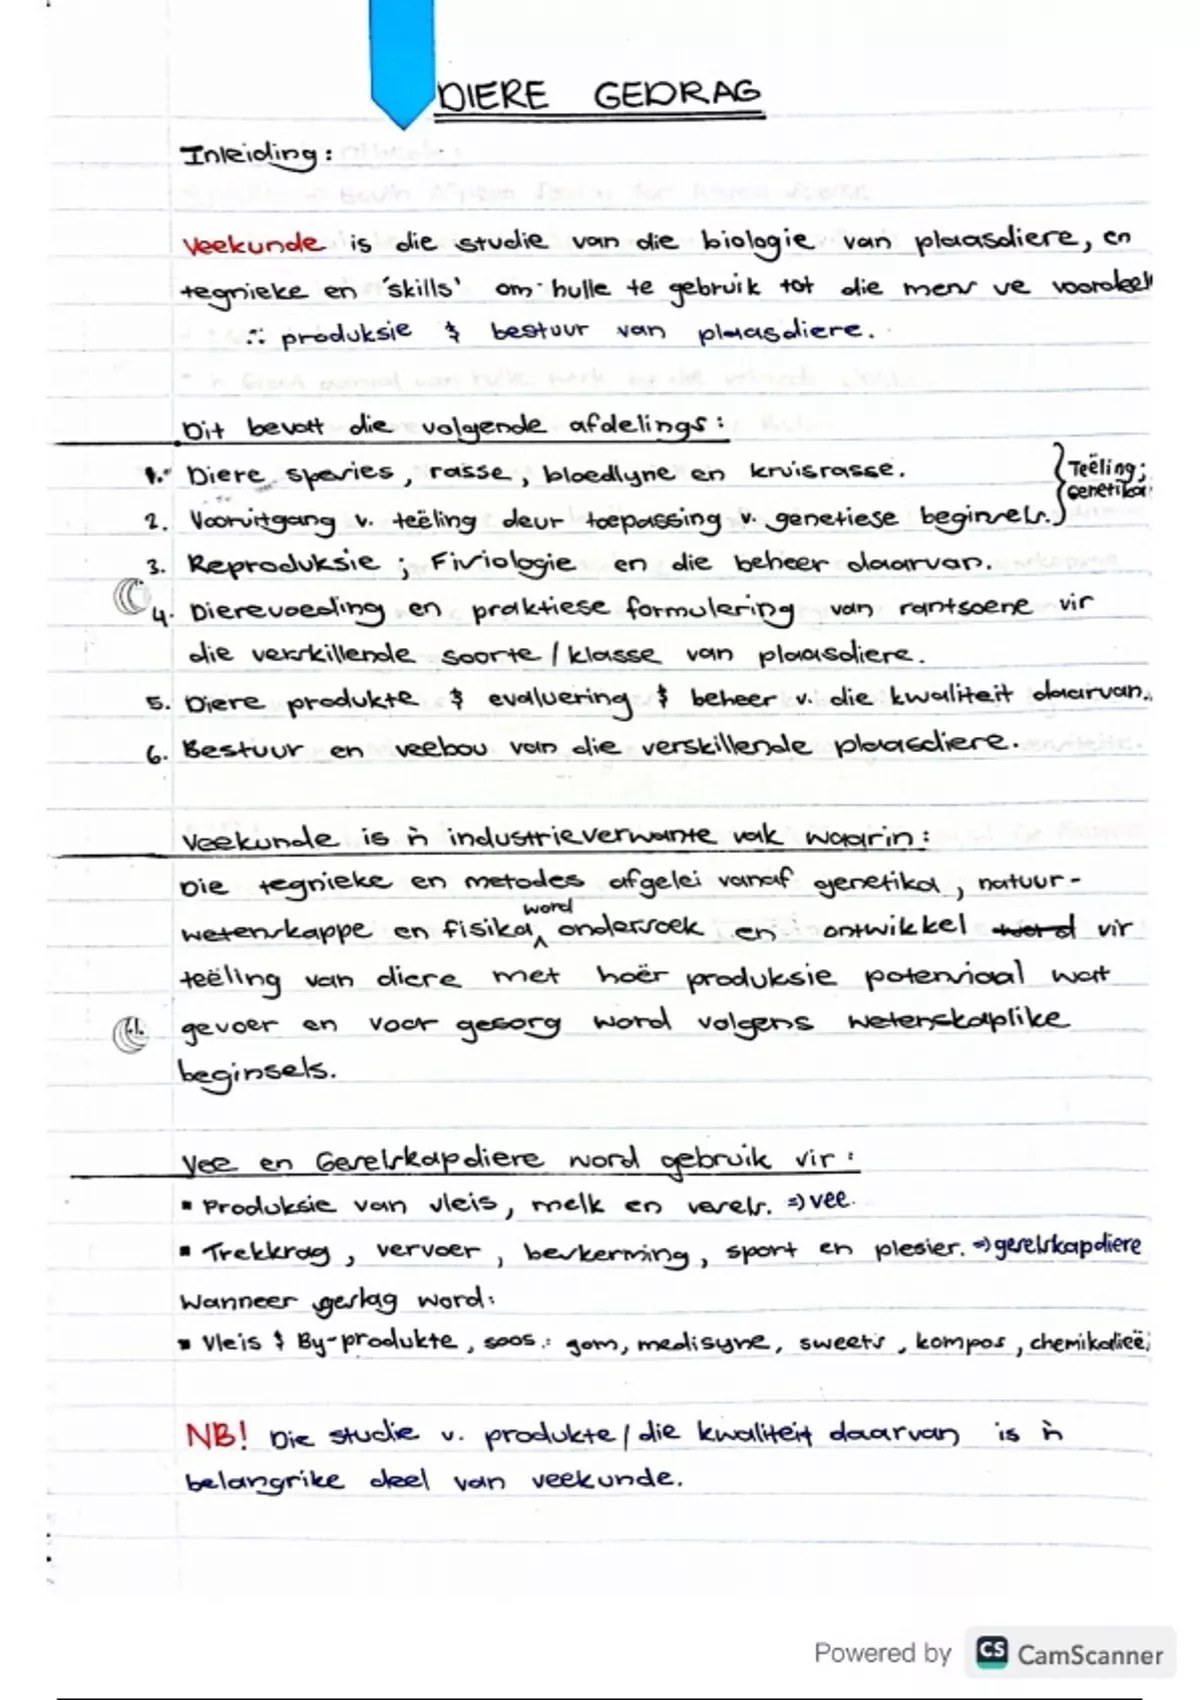 DIERE GEDRAG
Inleiding:
Veekunde is die studie van die biologie van plaasdiere, en
tegnieke en 'skills' om hulle te gebruik tot die mens se voordeel
∴ produksie & bestuur van plaasdiere.
Dit bevat die volgende afdelings:
1. Diere spesies, rasse, bloedlyne en kruisrasse.
Teëling;
genetika
2. Vooruitgang v. teëling deur toepassing v. genetiese beginsels.
3. Reproduksie ; Fisiologie en die beheer daarvan.
4. Dierevoeding en praktiese formulering van rantsoene vir
die verskillende soorte / klasse van plaasdiere.
5. Diere produkte & evaluering & beheer v. die kwaliteit daarvan.
6. Bestuur en veebou van die verskillende plaasdiere.
Veekunde is 'n industrieverwante vak waarin:
Die tegnieke en metodes afgelei vanaf genetika, natuur-
word
wetenskappe en fisika ^ ondersoek en ontwikkel word vir
teëling van diere met hoër produksie potensiaal wat
gevoer en voor gesorg word volgens wetenskaplike
beginsels.
Vee en Geselskapdiere word gebruik vir:
▪ Produksie van vleis, melk en vesels. ⇒ vee.
▪ Trekkrag, vervoer, beskerming, sport en plesier. ⇒ geselskapdiere
Wanneer geslag word:
▪ Vleis & By-produkte, soos: gom, medisyne, sweets, kompos, chemikalieë;
NB! Die studie v. produkte / die kwaliteit daarvan is 'n
belangrike deel van veekunde.
Powered by CS CamScanner